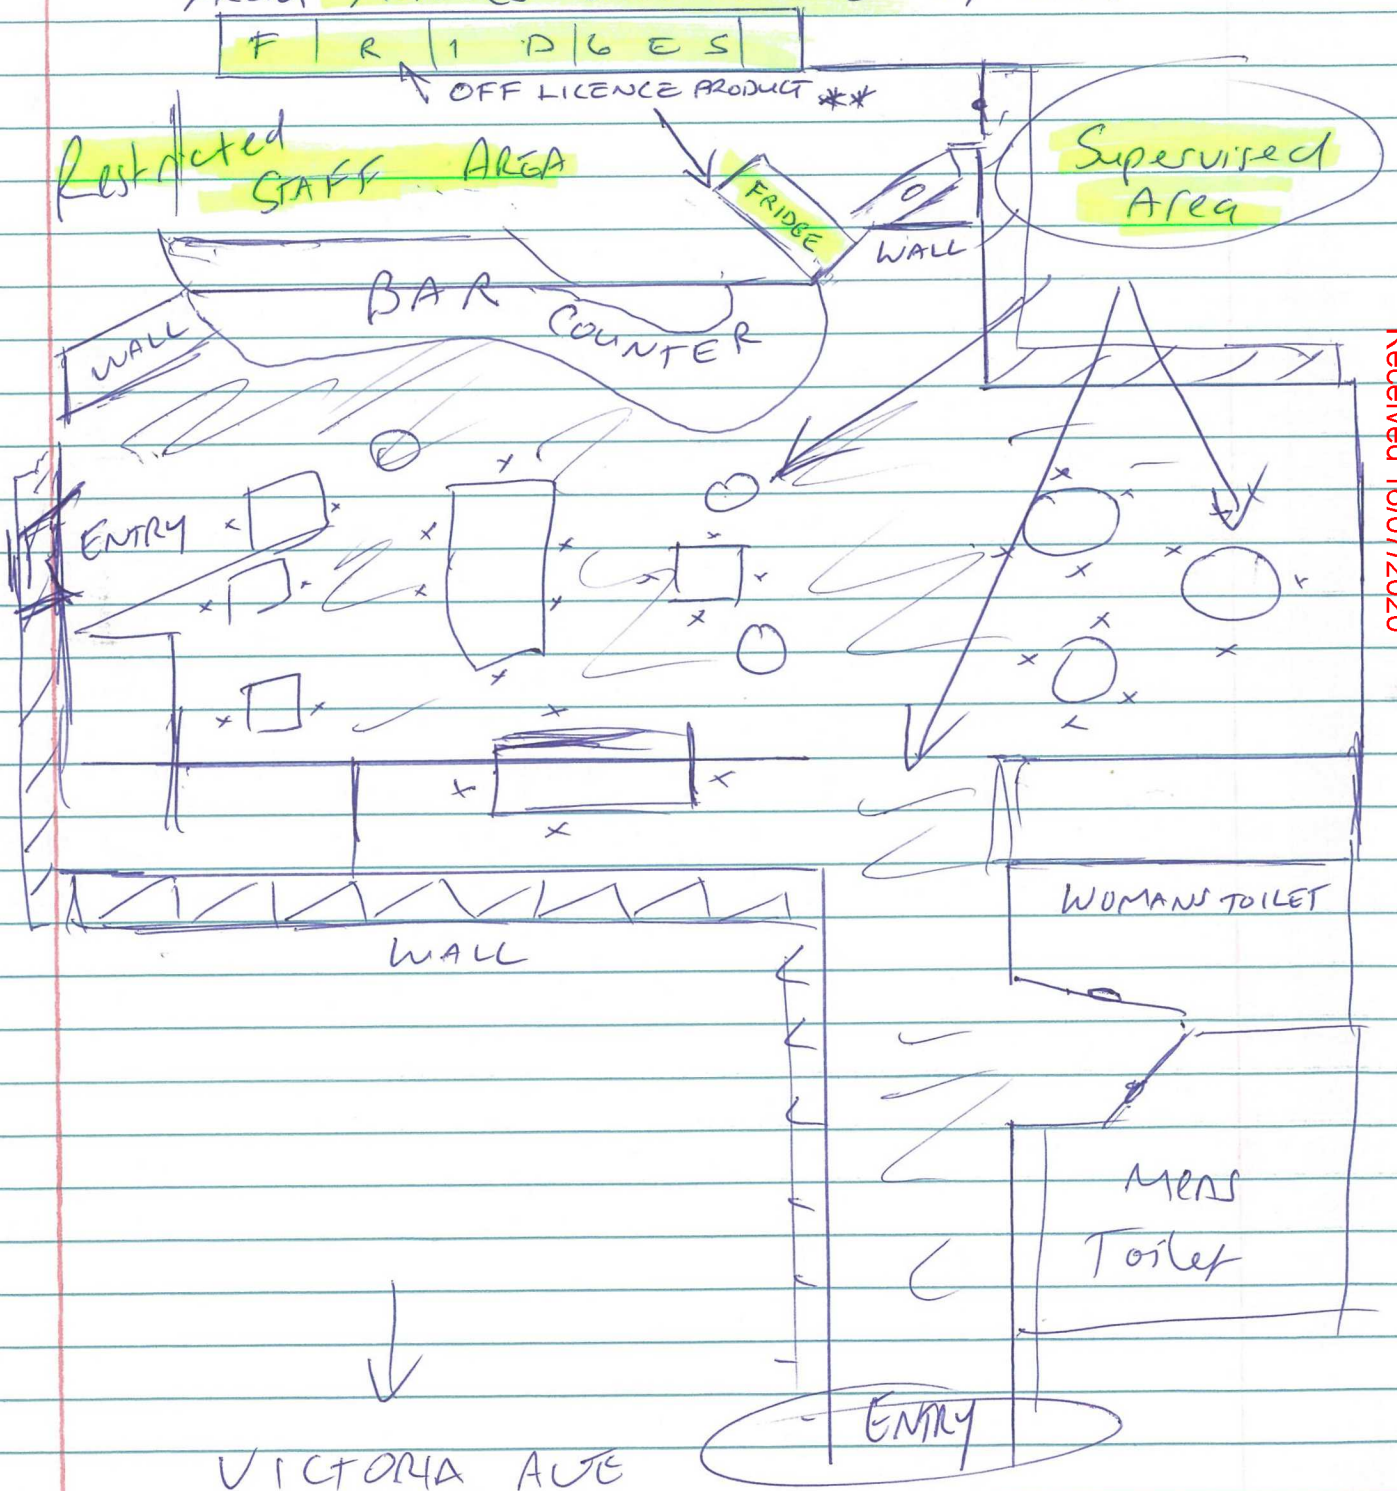 F R I D G E S
OFF LICENCE PRODUCT **
Restricted
STAFF AREA
Supervised
Area
FRIDGE
WALL
BAR
COUNTER
WALL
ENTRY
WOMANS TOILET
WALL
Mens
Toilet
ENTRY
VICTORIA AVE